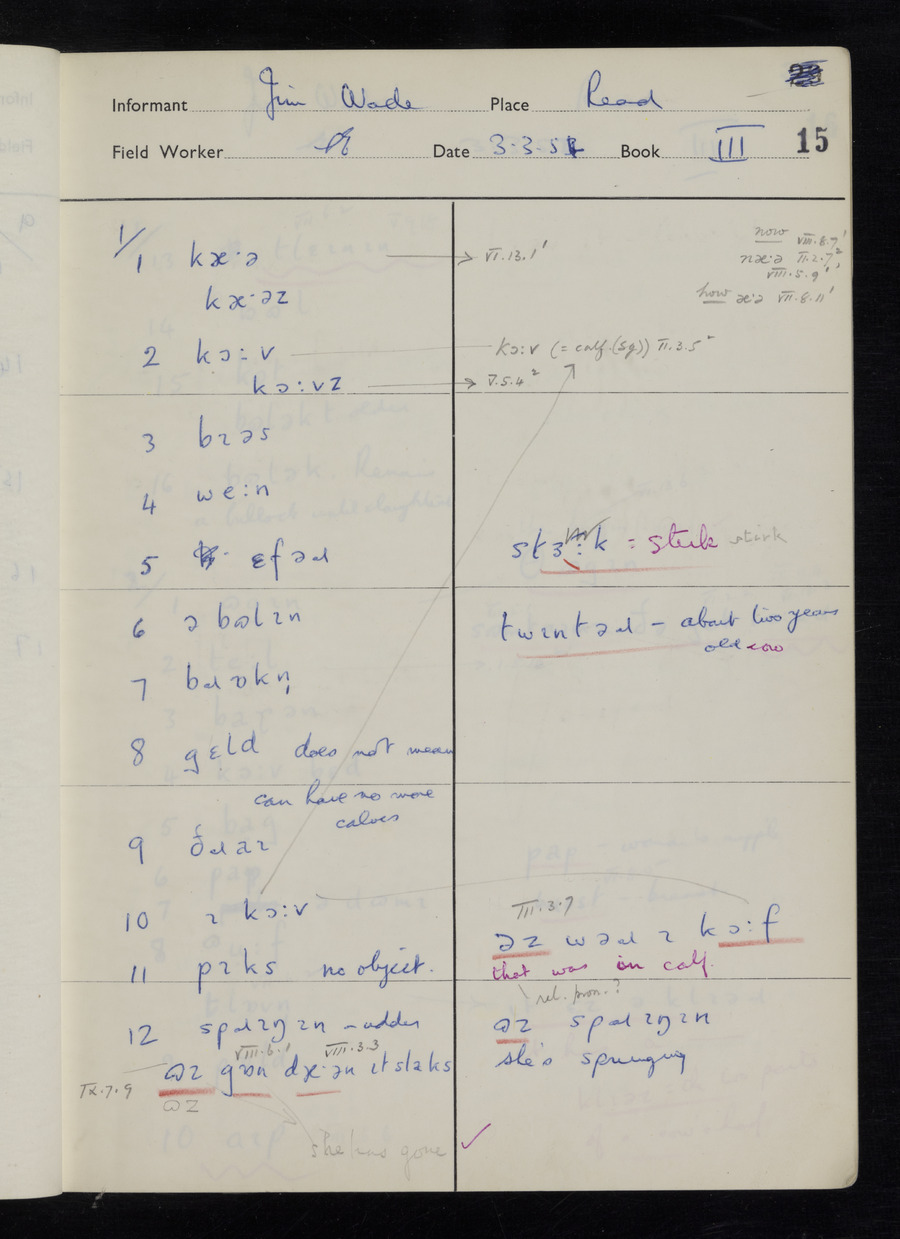 Informant Jim Wade Place Read
Field Worker Date 3.3.5 Book III 15
1/
1 kæ·ə → VI.13.1'
kæ·əz
now VIII.8.7'
næ·ə II.2.7²
VIII.5.9'
how æ·ə VII.8.11'
2 kɔ:v kɔ:v (= calf (sg)) II.3.5²
kɔ:vz → V.5.4²
3 bɪəs
4 we:n
5 ɛfəɹ stɜ:k = sturk stirk
6 ə bəlɪn twɪntəɹ – about two years
old cow
7 bɹɒkn̩
8 gɛld does not mean
can have no more
calves
9 ðɹaɪ
10 ɪ kɔ:v
III.3.7
əz wəɹ ɪ kɔ:f
11 pɪks no object. that was in calf.
rel. pron.?
12 spɹɪŋɪn – udder əz spɹɪŋɪn
VIII.6.1 VIII.3.3
əz gɒn dæ·ən ɪt slaks she's springing
IX.7.9
əz
she has gone ✓